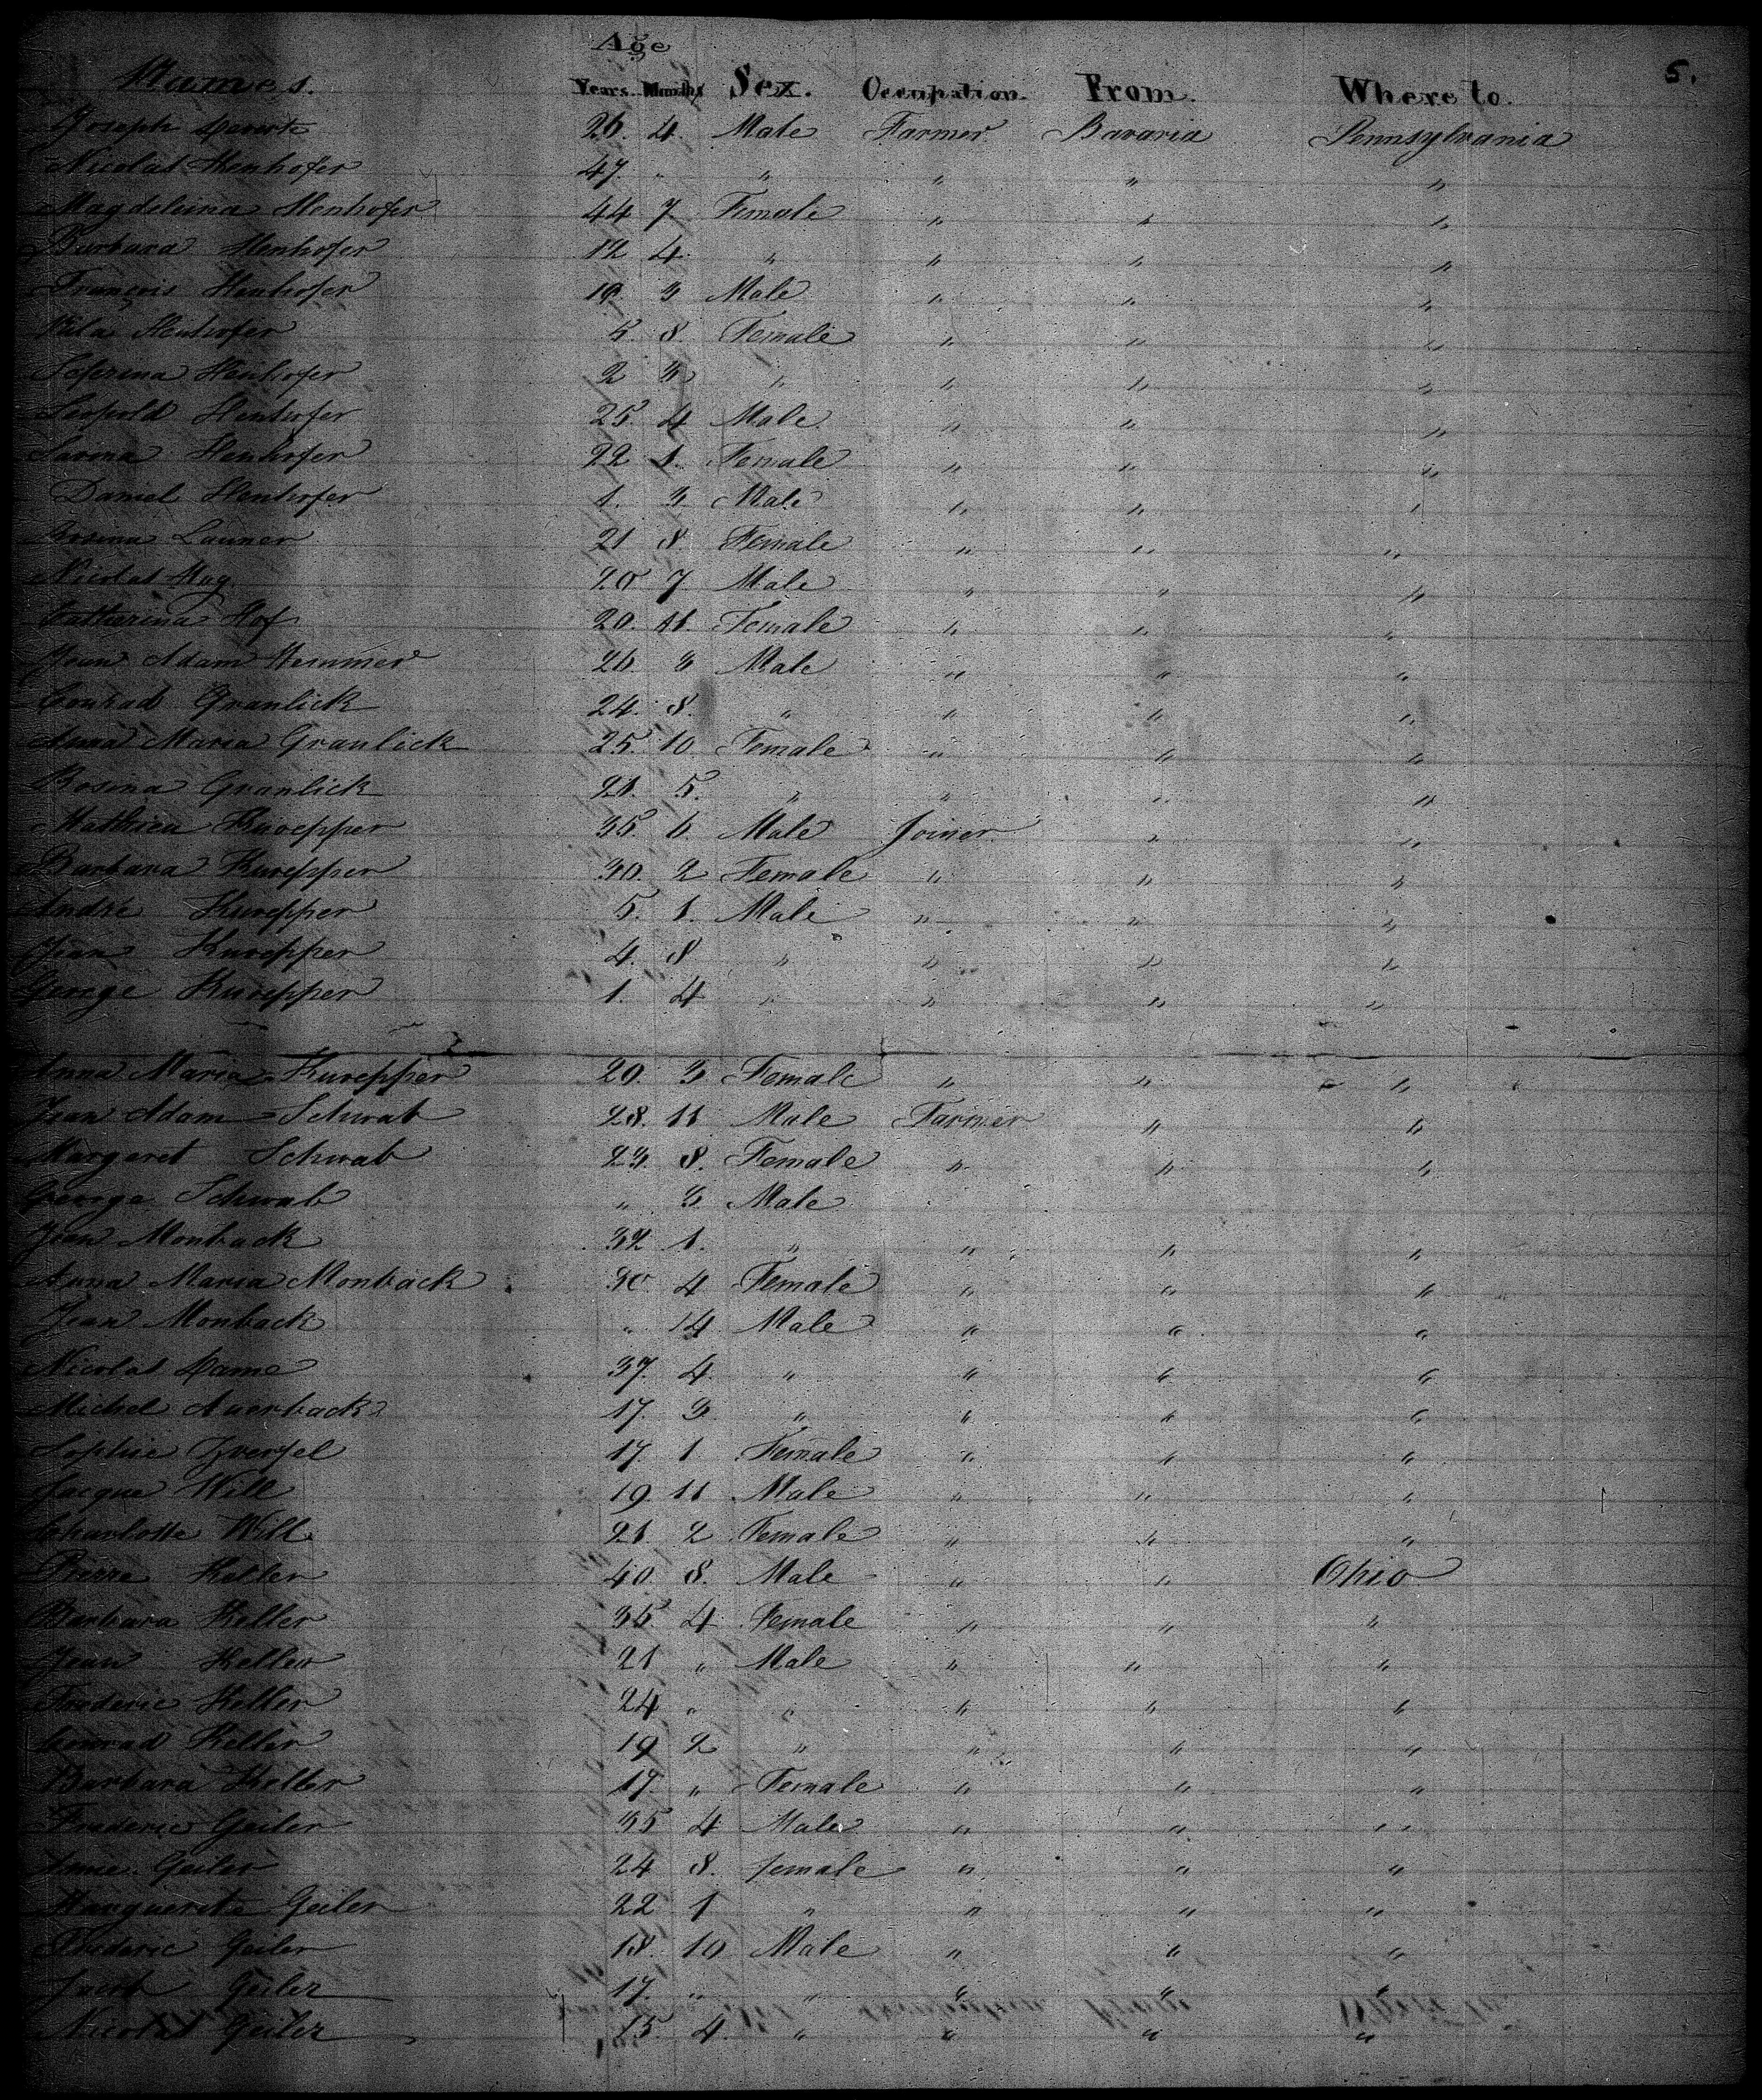 5.
Age
Names. Years. Months Sex. Occupation. From. Where to.
Joseph 26. 4. Male Farmer Bavaria Pennsylvania
Nicolas Henhofer 47. " " " " "
Magdeleina Henhofer 44 7 Female " " "
Barbara Henhofer 12 4. " " " "
François Henhofer 3 Male " " "
Henhofer 5. 8. Female " " "
Henhofer 2 3 " " " "
Leopold Henhofer 25. 4 Male " " "
Henhofer 22 1. Female " " "
Daniel Henhofer 1. 3 Male " " "
Rosina Launer 21 8. Female " " "
Nicolas 20 7 Male " " "
Catherina Hof 20. 11. Female " " "
Jean Adam Hemmer 26. 3 Male " " "
Conrad Granlick 24. 8. " " " "
Anna Maria Granlick 25. 10 Female " " "
Rosina Granlick 21. 5. " " " "
Mathieu 35. 6. Male Joiner " "
Barbara 30. 2 Female " " "
André 5. 1. Male " " "
Jean 4. 8 " " " "
George 1. 4 " " " "
Anna Maria 20. 3 Female " " "
Jean Adam Schwab 28. 11 Male Farmer " "
Margaret Schwab 23. 8. Female " " "
George Schwab " 3 Male
Jean Monback 32 1. " " " "
Anna Maria Monback 30 4 Female " " "
Jean Monback " 14 Male " " "
Nicolas 37. 4. " " " "
Michel Auerback 17. 3 " " " "
Sophie 17. 1 Female " " "
Jacque Will 19. 11 Male " " "
Charlotte Will 21. 2 Female " " "
Pierre Keller 40 8. Male " " Ohio
Barbara Keller 35. 4 Female " " "
Jean Keller 21 " Male " " "
Frederic Keller 24 " " " " "
Conrad Keller 19 2 " " " "
Barbara Keller 17. " Female " " "
Frederic Geiler 35 4 Male " " "
Anne Geiler 24 8. female " " "
Marguerite Geiler 22 1 " " " "
Frederic Geiler 18. 10 Male " " "
Jacob Geiler 17. " " " " "
Nicolas Geiler 15 4. " " " "